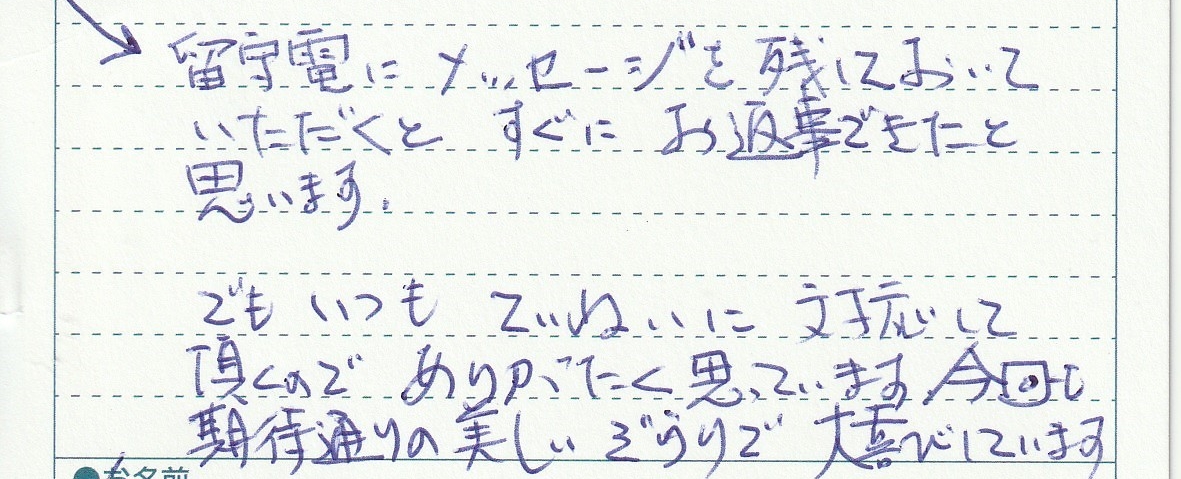 留守電に メッセージを 残しておいて
いただくと すぐに お返事できたと
思います.
でも いつも ていねいに 対応して
頂くので ありがたく 思っています 今回も
期待通りの 美しい ぞうりで 大喜びしています
●お名前